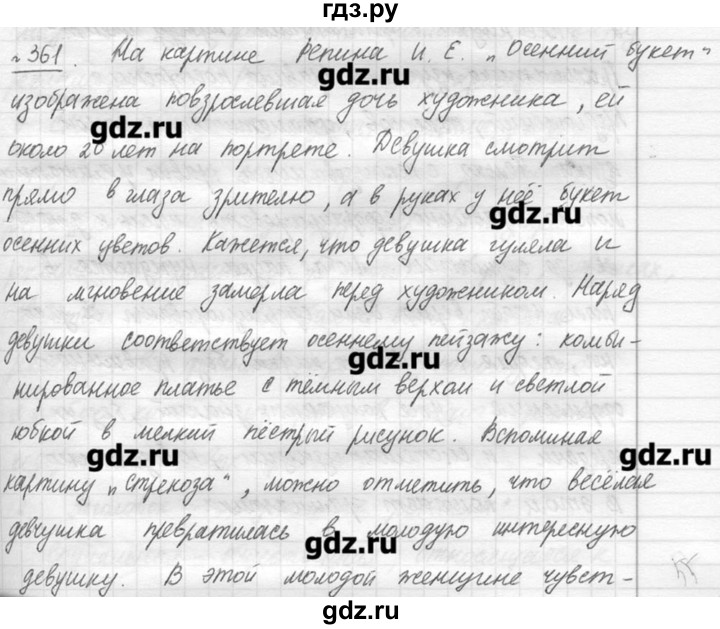 гдз.ру
№361. На картине Репина И. Е. „Осенний букет"
gdz.ru
изображена повзрослевшая дочь художника, ей
gdz.ru
около 20 лет на портрете. Девушка смотрит
прямо в глаза зрителю, а в руках у неё букет
gdz.ru
осенних цветов. Кажется, что девушка гуляла и
на мгновение замерла перед художником. Наряд
девушки соответствует осеннему пейзажу: комби-
gdz.ru
нированное платье с тёмным верхом и светлой
юбкой в мелкий пёстрый рисунок. Вспоминая
gdz.ru gdz.ru
картину „Стрекоза", можно отметить, что весёлая
девчушка превратилась в молодую интересную
gdz.ru
девушку. В этой молодой женщине чувст-
gdz.ru